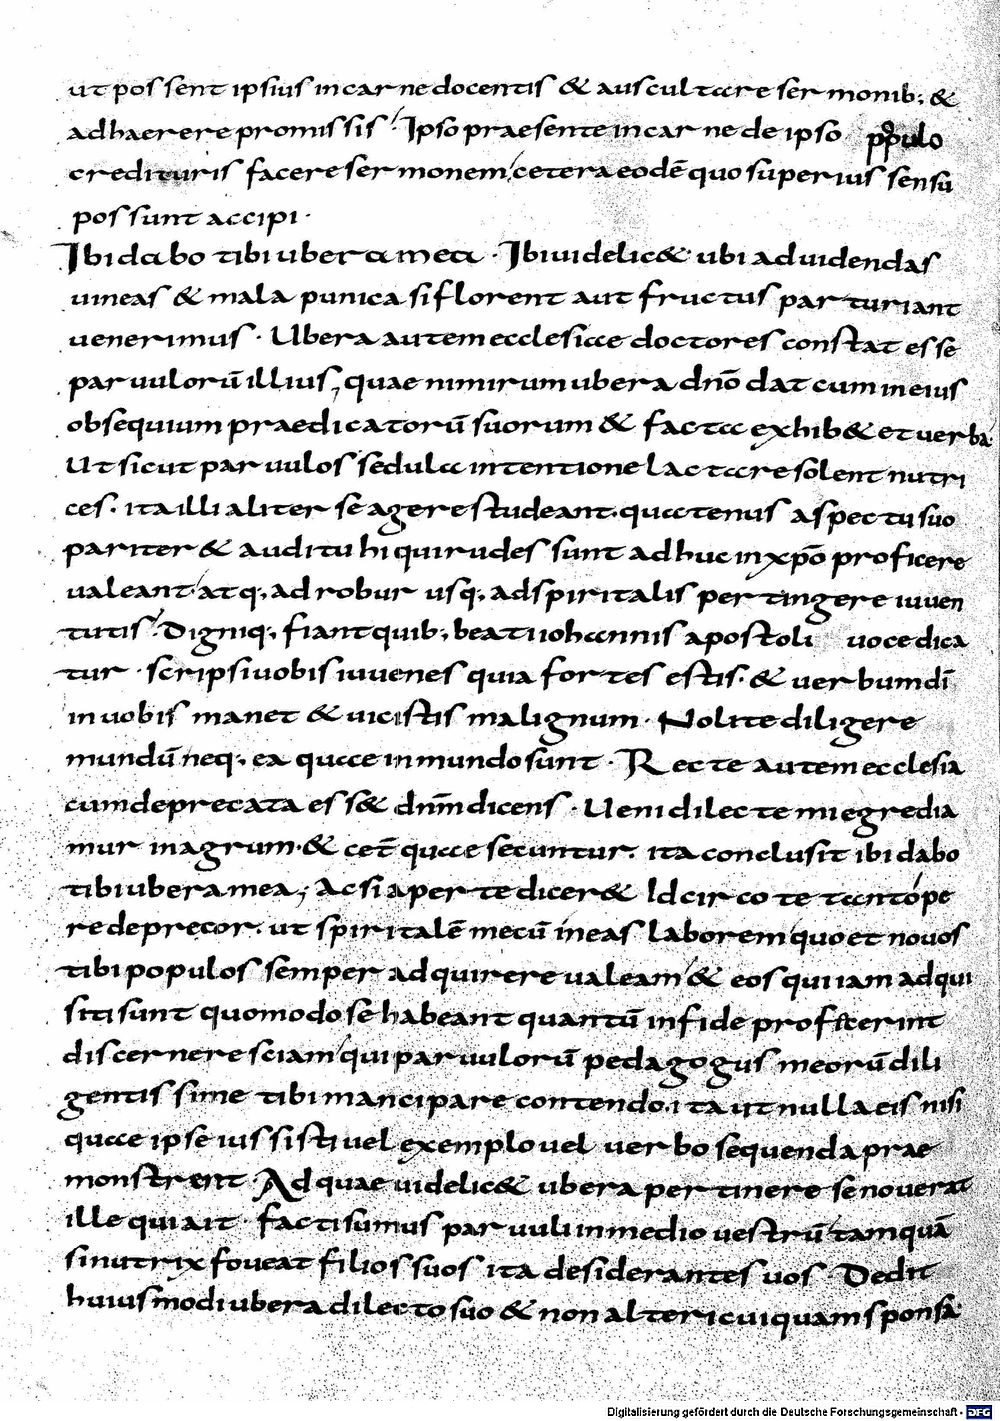 ut possent ipsius in carne docentis & auscultare sermonib; &
adhaerere promissis. Ipso praesente in carne de ipso populo
credituris facere sermonem, cetera eodē quo superius sensu
possunt accipi.
Ibi dabo tibi ubera mea. Ibi videlic& ubi ad videndas
uineas & mala punica si florent aut fructus parturiant
uenerimus. Ubera autem ecclesiae doctores constat esse
paruulorū illius, quae nimirum ubera dnō dat cum in eius
obsequium praedicatorū suorum & facta exhib& et uerba
Ut sicut paruulos sedula intentione lactare solent nutri
ces. ita illi aliter se agere studeant. quatenus aspectu suo
pariter & auditu hi qui rudes sunt adhuc in xpō proficere
ualeant. atq; ad robur usq; ad spiritalis pertingere iuuen
tutis. Digniq; fiant quib; beati iohannis apostoli uoce dica
tur. scripsi uobis iuuenes quia fortes estis. & uerbum dī
in uobis manet & uicistis malignum. Nolite diligere
mundū neq; ea quae in mundo sunt. Recte autem ecclesia
cum deprecata ess& dn̄m dicens. Ueni dilecte mi egredia
mur in agrum. & cet̄ quae secuntur. ita conclusit ibi dabo
tibi ubera mea; Ac si aperte dicer& Idcirco te tantope
re deprecor. ut spiritalē mecū ineas laborem quo et nouos
tibi populos semper adquirere ualeam & eos qui iam adqui
siti sunt quomodo se habeant quantū in fide profecerint
discernere sciam qui paruulorū pedagogus meorū dili
gentissime tibi mancipare contendo. ita ut nulla eis nisi
quae ipse iussisti uel exemplo uel uerbo sequenda prae
monstrent. Ad quae uidelic& ubera pertinere se nouerat
ille qui ait. facti sumus paruuli in medio uestrū tamquā
si nutrix foueat filios suos ita desiderantes uos. Dedit
huiusmodi ubera dilecto suo & non alteri cuiquam sponsa
Digitalisierung gefördert durch die Deutsche Forschungsgemeinschaft - DFG